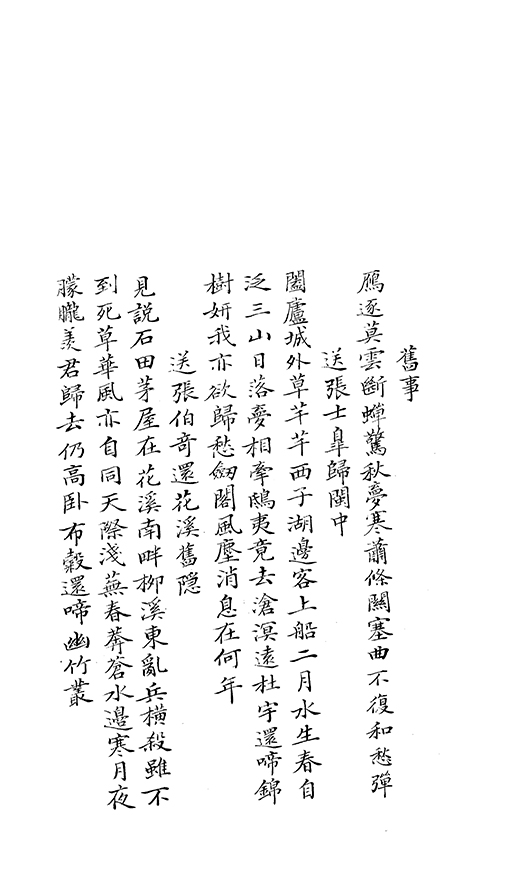 舊事
鴈逐莫雲斷蟬驚秋夢寒蕭條關塞曲不復和愁彈
送張士皐歸閩中
闔廬城外草芊芊西子湖邊客上船二月水生春自
泛三山日落夢相牽鴟夷竟去滄溟遠杜宇還啼錦
樹妍我亦欲歸愁劒閣風塵消息在何年
送張伯奇還花溪舊隠
見説石田茅屋在花溪南畔栁溪東亂兵橫殺雖不
到死草華風亦自同天際淺蕪春莾蒼水邊寒月夜
朦朧羡君歸去仍高卧布穀還啼幽竹叢